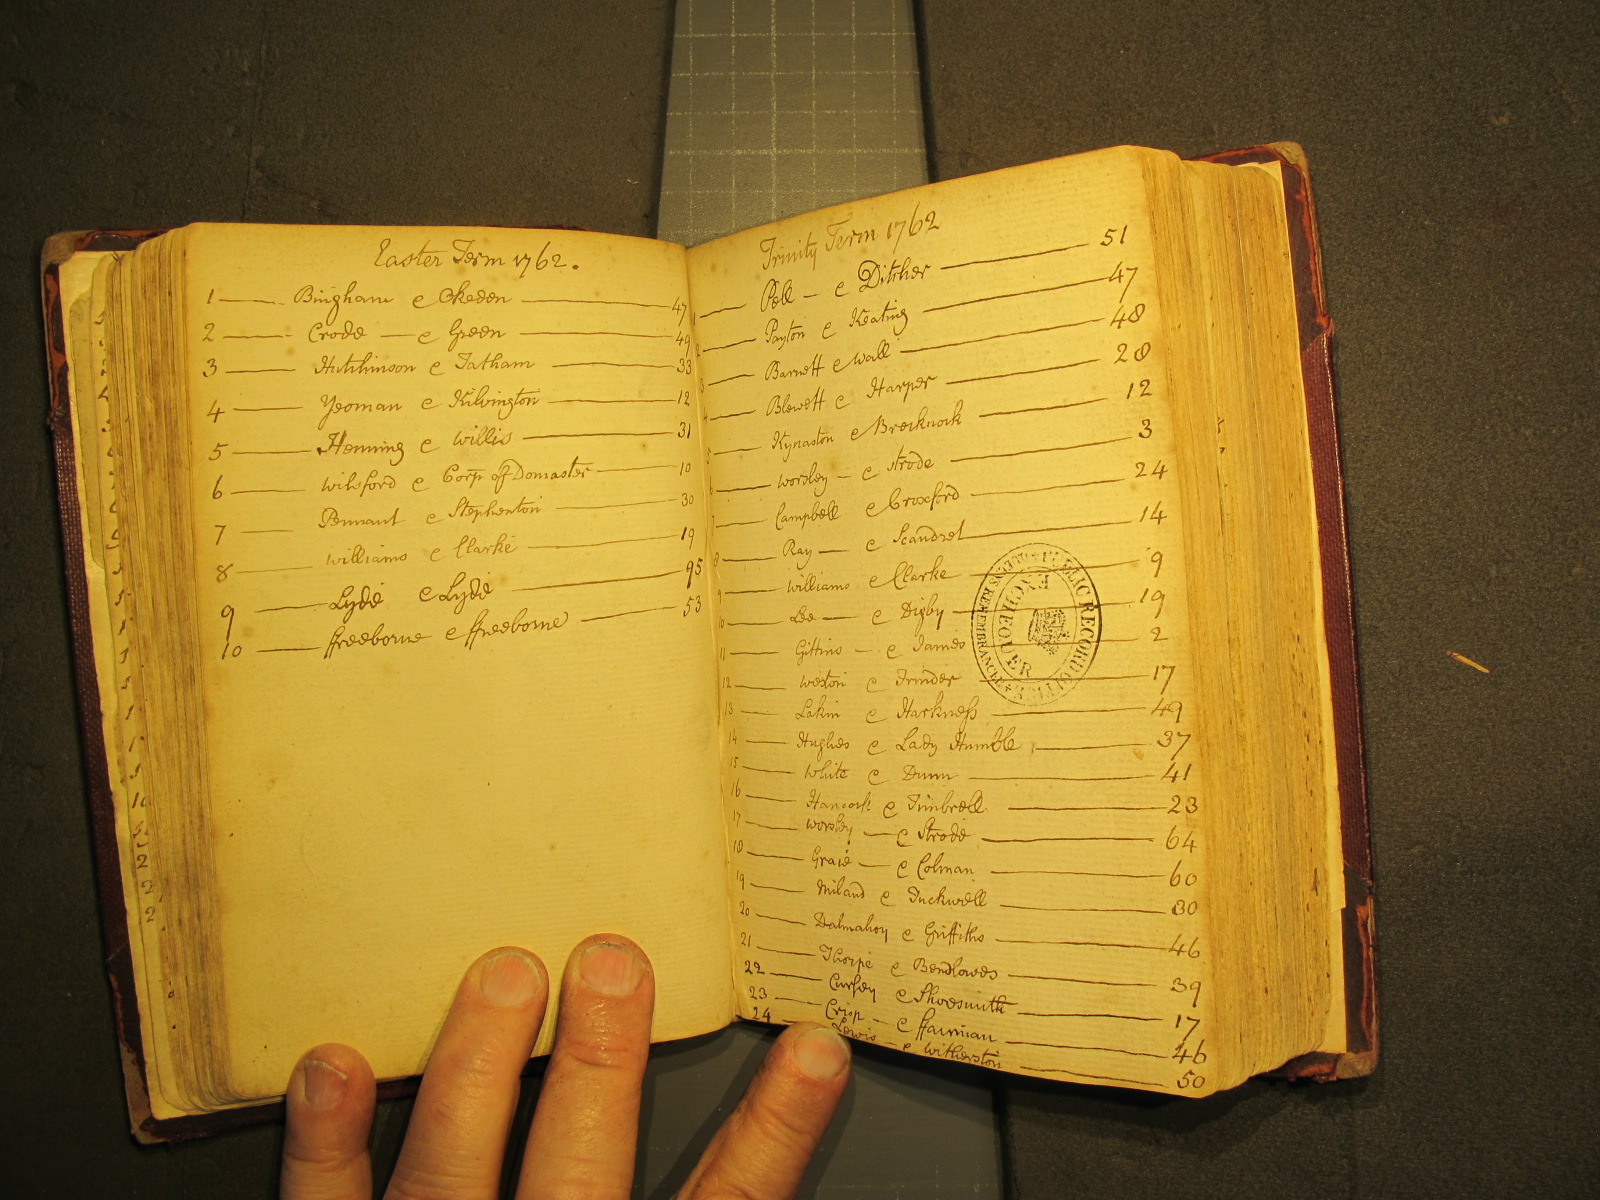 Easter Term 1762.
1 Bingham e Okeden 47
2 Crode e Green 49
3 Hutchinson e Tatham 33
4 Yeoman e Kilvington 12
5 Henning e Willis 31
6 Wilsford e Corp of Domaster 10
7 Pennant e Stephenton 30
8 Williams e Clarke 19
9 Lydd e Lydd 95
10 ffreeborne e ffreeborne 53
Trinity Term 1762
1 Pell e Ditcher 51
2 Payton e Keating 47
3 Barnett e Wall 48
4 Blewett e Harper 28
5 Kynaston e Brecknock 12
6 Worsley e Strode 3
7 Campbell e Croxford 24
8 Ray e Scandret 14
9 Williams e Clarke 9
10 Lee e Digby 19
11 Gittins e James 2
12 Weston e Trinder 17
13 Lakin e Harkness 49
14 Hughes e Lady Humble 37
15 White e Dunn 41
16 Hancock e Timbrell 23
17 Worsley e Strode 64
18 Graie e Colman 60
19 Miland e Tuckwell 30
20 Dalmahoy e Griffiths 46
21 Thorpe e Bendlowes 39
22 Cursey e Shoesmith 17
23 Crisp e ffairman 46
24 Lewis e Witherston 50
PUBLIC RECORD OFFICE
EXCHEQUER
REMEMBRANCE